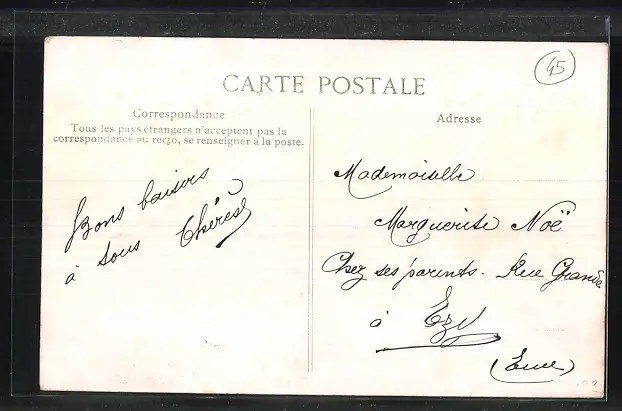 45
CARTE POSTALE
Correspondance
Tous les pays étrangers n'acceptent pas la
correspondance au recto, se renseigner à la poste.
Bons baisers
à tous Thérèse
Adresse
Mademoiselle
Marguerite Noë
Chez ses parents. Rue Grande
à Ezy
(Eure)